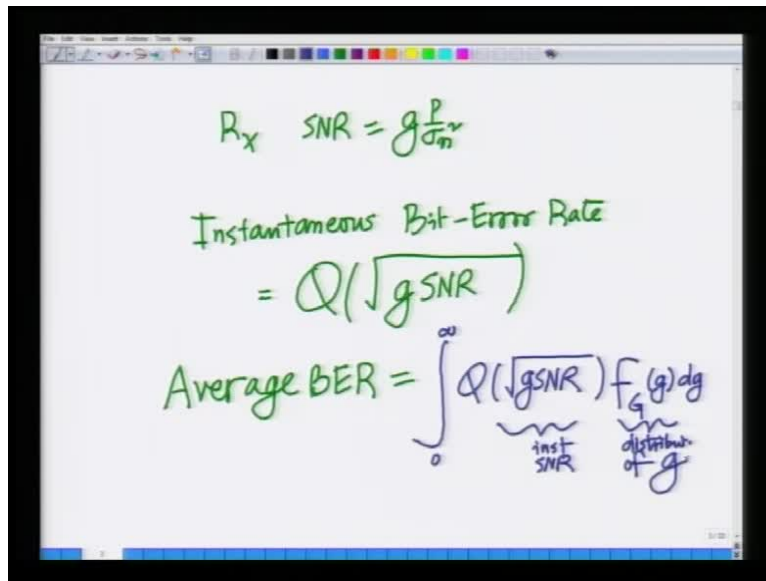 File Edit View Insert Actions Tools Help
Rx SNR = g P/σn²
Instantaneous Bit-Error Rate
= Q(√g SNR )
Average BER = ∫0∞ Q(√gSNR) fG(g) dg
inst distribu.
SNR of g